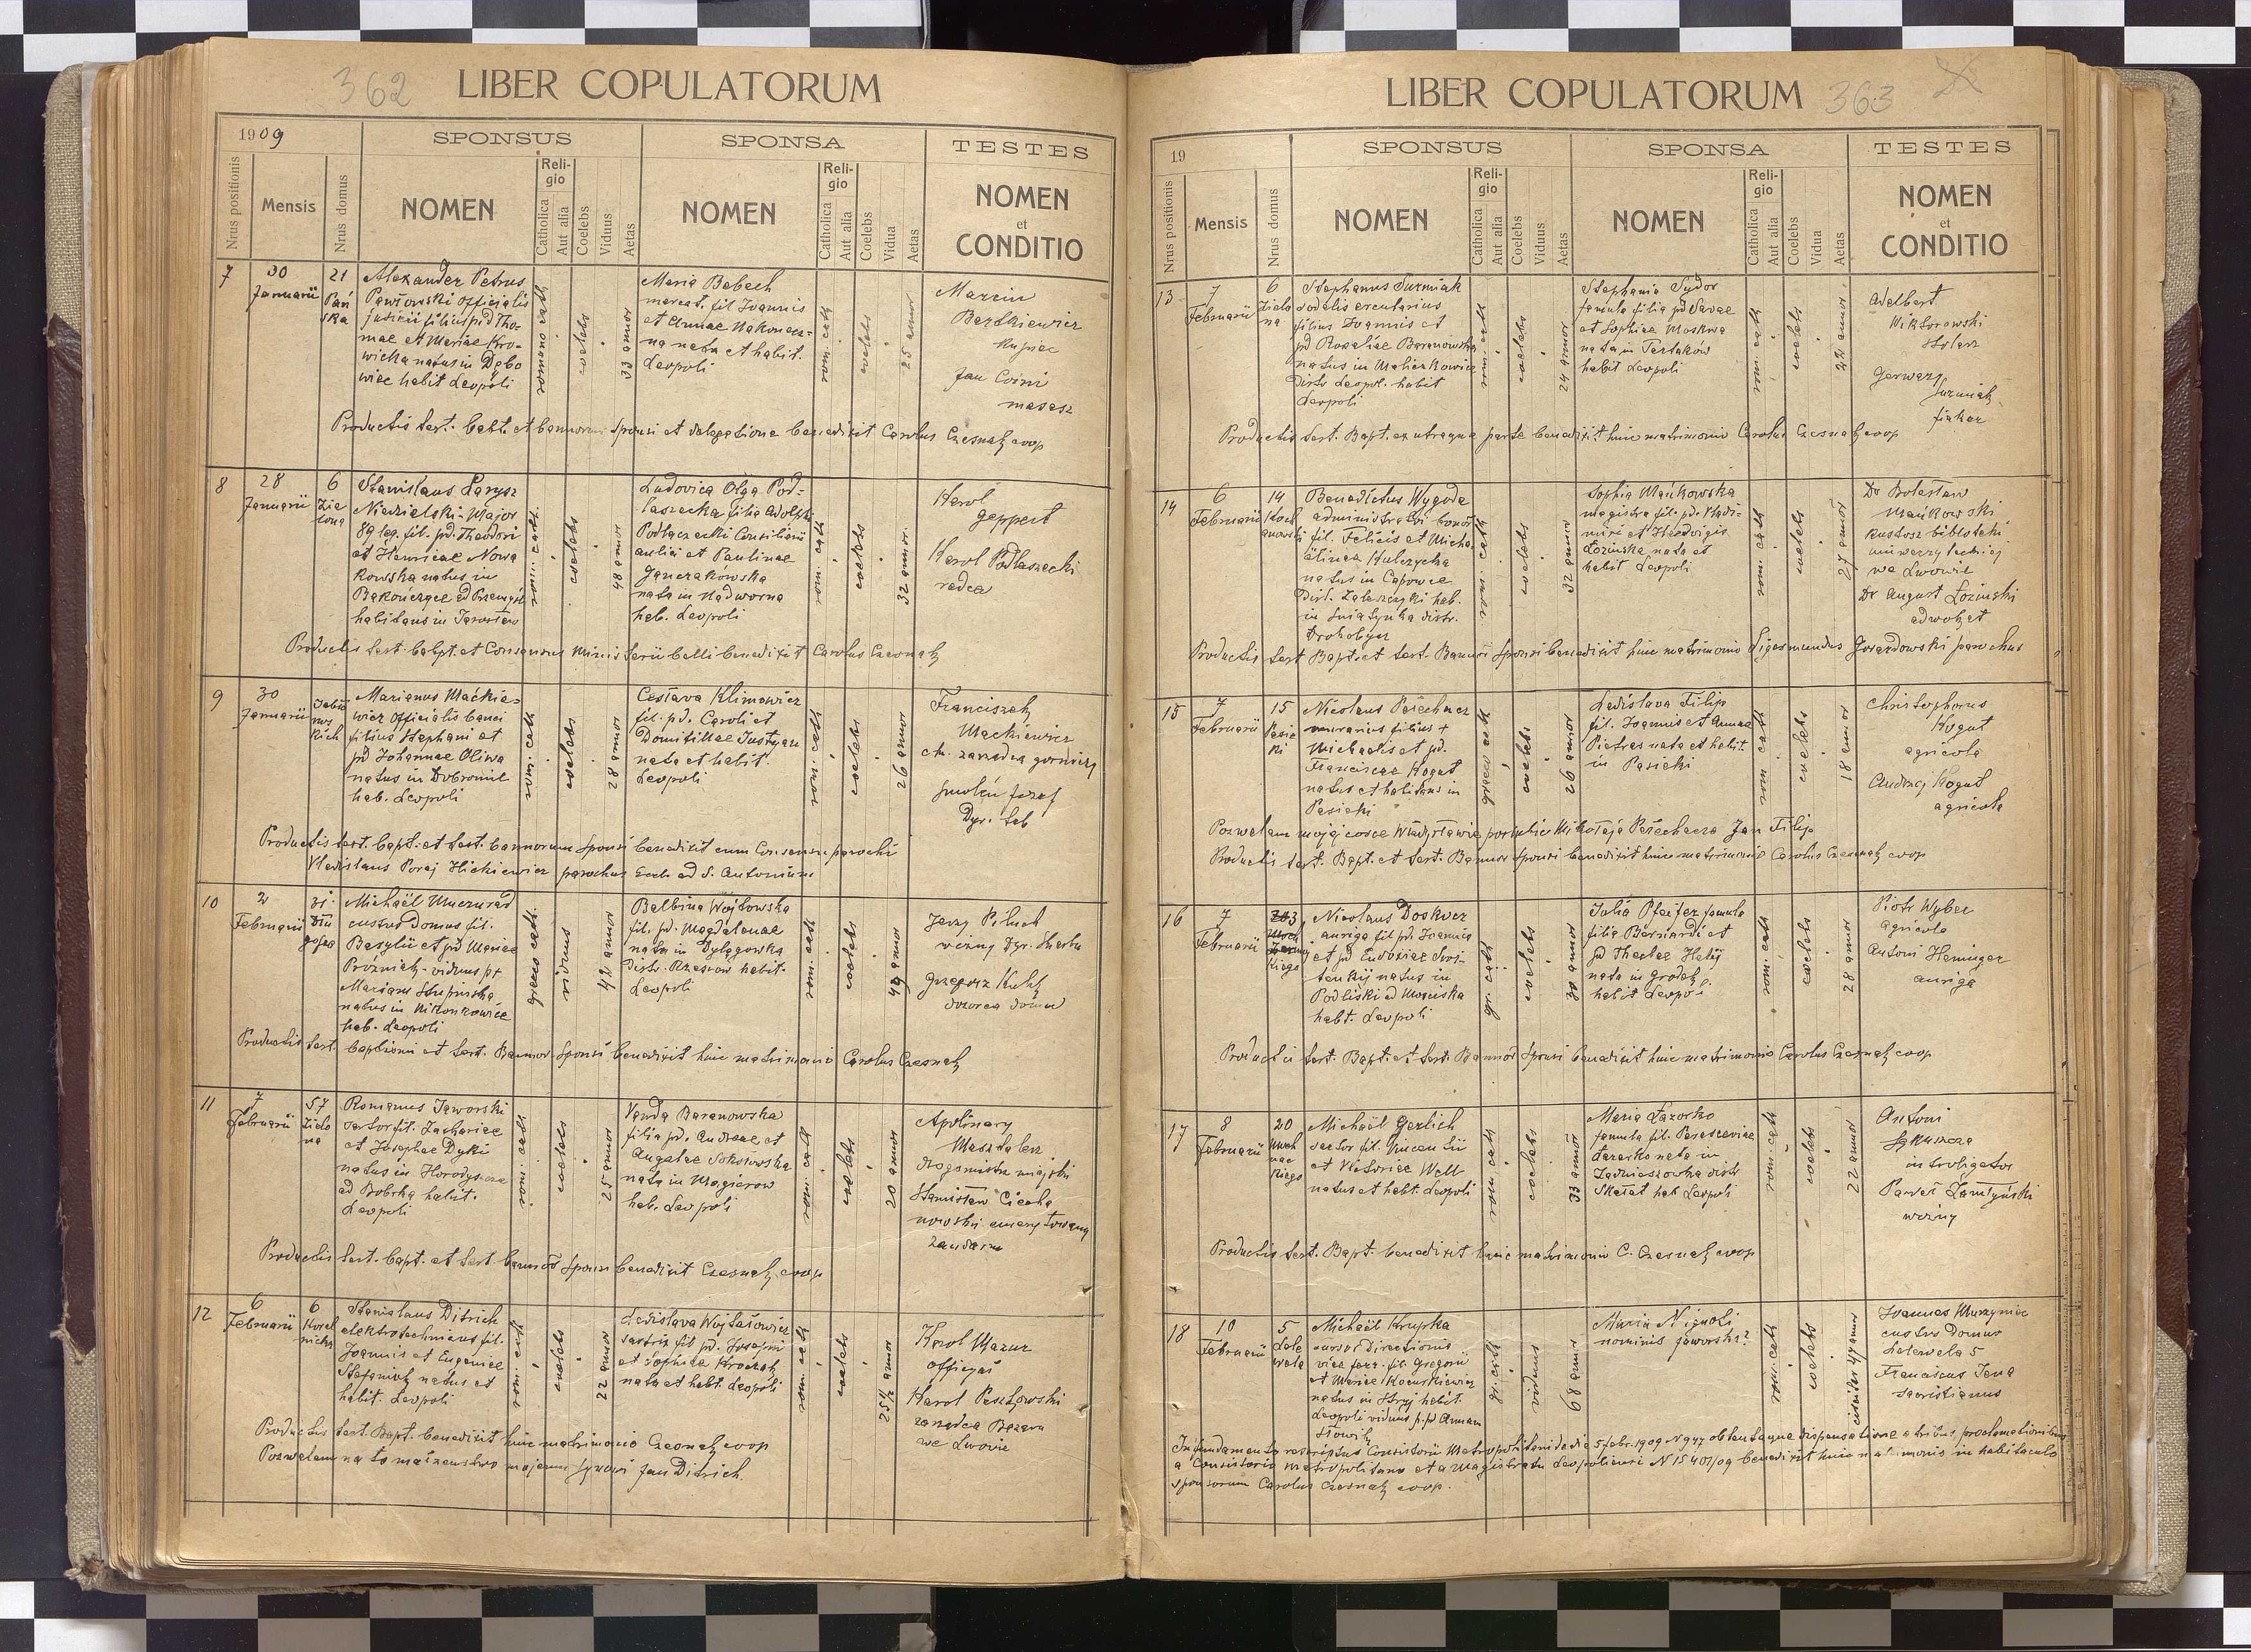 362
LIBER COPULATORUM
1909
SPONSUS
SPONSA
TESTES
Nrus positionis
Mensis
Nrus domus
NOMEN
Religio
Catholica
Aut alia
Coelebs
Viduus
Aetas
NOMEN
Religio
Catholica
Aut alia
Coelebs
Vidua
Aetas
NOMEN
et
CONDITIO
7
30
Januarii
21
Pań
ska
Alexander Petrus
Pawłowski officialis
judicii filius pd Tho-
mae et Mariae Kro-
wicka natus in Dębo
wiec habit Leopoli
romano cath
coelebs
33 annor
Maria Bebech
mercat. fil Joannis
et Annae
na nata et habit.
Leopoli
rom. cath
coelebs
25 annor
Marcin
Bartkiewicz
kupiec
Jan
masarz
Productis test. bapt. et bannorum sponsi et delegatione benedixit Carolus Czesnak coop
8
28
Januarii
6
Zie
lona
Stanislaus Larysz
Niedzielski-Major
89 leg. fil. pd. Theodori
et Henricae Nowa
kowska natus in
Bakończyce ad Przemyśl
habitans in Jarosław
rom. cath.
coelebs
48 annor
Ludovica Olga Pod-
laszecka filia Adolphi
Podlaszecki Consiliarii
aulici et Paulinae
Janczakowska
nata in Nadworna
hab. Leopoli
rom. cath
coelebs
32 annor.
Karol
Geppert
Karol Podlaszecki
radca
Productis test. babpt. et Consensus Ministerii belli benedixit Carolus Czesnak
9
30
Januarii
Jabło
nows
kich
Marianus Maćkie-
wicz officialis banci
filius Stephani et
pd Johannae Oliwa
natus in Dobromil
hab. Leopoli
rom. cath
coelebs
28 annor
Cesława Klimowicz
fil. pd. Caroli et
Domitillae Justyan
nata et habit.
Leopoli
rom. cath
coelebs
26 annor
Franciszek
Maćkiewicz
Józef
Dyr.
Productis test. bapt. et test. bannorum sponsi benedixit cum Consensu parochi
Vladislaus Poraj Hickiewicz parochus Eccl. ad S. Antonium
10
2
Februarii
31
Dłu
gosza
Michaël
custos Domus fil.
Basylii et pd Mariae
Próżniak - viduus p+
Mariam Stupinska
natus in Mikonkowice
hab. Leopoli
graeco cath.
viduus
42 annor
Balbina Wojtowska
fil. pd. Magdalenae
nata in Dylągowska
Distr. Rzeszow habit.
Leopoli
rom. cath
coelebs
49 annor
Jerzy Piluch
woźny Dyr. skarbu
Grzegorz Kuhk
dozorca domu
Productis test. baptismi et test. Bannor sponsi benedixit huic matrimonio Carolus Czesnak
11
7
Februarii
57
Zielo
na
Romanus Jaworski
sartor fil. Zachariae
et Josephae Dyki
natus in Horodyszcze
ad Bobrka habit.
Leopoli
rom. cath
coelebs
25 annor
Vanda Baranowska
filia pd. Andreae et
Angelae Sokołowska
nata in Magierow
hab. Leopoli
rom. cath
coelebs
20 annor
Apolinary
Masztalerz
drogomistrz miejski
Stanisław Ciecha
nowski emerytowany
żandarm
Productis test. bapt. et test bannor sponsi benedixit Czesnak coop
12
6
Februarii
6
Koral
nicka
Stanislaus Ditrich
elektrotechnicus fil.
Joannis et Eugeniae
Stefaniak natus et
habit. Leopoli
rom. cath
coelebs
22 annor
Ladislava Wojtasiewicz
sartrix fil pd. Josephi
et Sophiae Kroczak
nata et habt. Leopoli
rom. cath
coelebs
25½ annor
Karol Mazur
officyał
Karol Pesztowski
zarządca Bazaru
we Lwowie
Productis test. Bapt. benedixit huic matrimonio Czesnak coop
Pozwalam na to małżenstwo mojemu synowi Jan Ditrich.
LIBER COPULATORUM
363
19
SPONSUS
SPONSA
TESTES
Nrus positionis
Mensis
Nrus domus
NOMEN
Religio
Catholica
Aut alia
Coelebs
Viduus
Aetas
NOMEN
Religio
Catholica
Aut alia
Coelebs
Vidua
Aetas
NOMEN
et
CONDITIO
13
7
Februarii
6
Zielo
na
Stephanus Surmiak
sodalis arcularius
filius Joannis et
pd Rosaliae Baranowska
natus in Malieczkowice
Distr Leopol. habit
Leopoli
rom. cath
coelebs
24 annor
Stephania Sydor
famula filia pd Savae
et Sophiae Moskwa
nata in Tartaków
habit Leopoli
rom. cath
coelebs
22 annor.
Adelbert
Wiktorowski
stolarz
Gerwazy
Surmiak
fiakor
Productis test. Bapt. ex utraque parte benedixit huic matrimonio Carolus Czesnak coop
14
6
Februarii
14
Koch
anows
ki
Benedictus Wygoda
administrator bonor
fil. Felicis et Micha
ëlinae Kulczycka
natus in Capowce
Distr. Zaleszczyki hab.
in Sniatynka distr.
Drohobycz
rom. cath
coelebs
32 annor
Sophia Mańkowska
magistra fil. pd. Vladi-
miri et Hedvigis
Łozinska nata et
habit Leopoli
rom. cath
coelebs
27 annor
Dr Bolesław
Mańkowski
kustosz bibloteki
uniwerzyteckiej
we Lwowie
Dr August Łozinski
adwokat
Productis test Bapt. et test. Bannor sponsi benedixit huic matrimonio Sigismundus Gorazdowski parochus
15
7
Februarii
15
Pasie
ki
Nicolaus Pesechacz
murarius filius +
Michaelis et pd.
Franciscae Kogut
natus et habitans in
Pasieki
graeco cath
coelebs
26 annor
Ladislava Filip
fil. Joannis et Annae
Pietras nata et habit.
in Pasieki
rom cath
coelebs
18 annor
Christophorus
Kogut
agricola
Andrzej Kogut
agricola
Pozwalam mojej corce Władysławie poślubić Mikołaja Pesechacza Jan Filip
Productis test. Bapt. et test. Bannor sponsi benedixit huic matrimonio Carolus Czesnak coop
16
7
Februarii
Nicolaus Doskocz
auriga fil pd. Joannis
et pd Eudoxiae Svos-
tenkij natus in
Podliski ad Mosciska
habt. Leopoli
gr. cath
coelebs
30 annor
Julia Pfeifer famula
filia Bernardi et
pd Theclae Halij
nata in Grodek
habit Leopoli
rom. cath
coelebs
28 annor
Piotr Wyber
agricola
Antoni Heninger
auriga
Productis test. Bapt. et test. Bannor sponsi benedixit huic matrimonio Carolus Czesnak coop
17
8
Februarii
20
Moch
nac
kiego
Michaël Gerlich
sartor fil. Vincentii
et Victoriae Well
natus et habt. Leopoli
rom cath
coelebs
33 annor
Maria Łazorko
famula fil. Parasceviae
Łazorko nata in
Zadnieszowka distr
Skałat hab Leopoli
rom. cath
coelebs
22 annor
Antoni
introligator
Paweł Zamłyński
woźny
Productis test. Bapt. benedixit huic matrimonio C. Czesnak coop
18
10
Februarii
5
Lele
wela
Michaël Krupka
cursor Directionis
viae ferr. fil. Gregorii
et Mariae Kocuskiewicz
natus in Stryj habit.
Leopoli viduus p.pd Annam
Howik
gr. cath
viduus
68 annor
Maria Nignoti
nominis Jaworska?
rom. cath
coelebs
circiter 47 annor
Joannes Murzyniec
custos Domus
Lelewela 5
Franciscus Jena
sacristianus
In fundamento rescriptus Consistorii Metropolitani de dia 5 febr. 1909 N 947 obtentaque dispensatione a tribus proclamationibus
a Consistorio Metropolitano et a Magistratu Leopoliensi N 15401/09 benedixit huic matrimonio in habitaculo
sponsorum Carolus Czesnak coop.